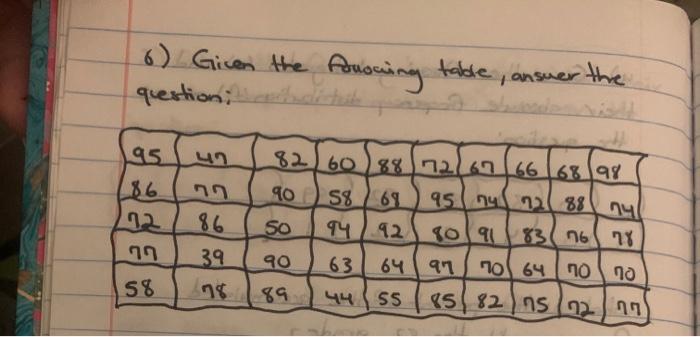 6) Given the following table, answer the
question:
95 47 82 60 88 72 67 66 68 98
86 77 90 58 69 95 74 72 88 74
72 86 50 94 92 80 91 83 76 78
77 39 90 63 64 97 70 64 70 70
58 78 89 44 55 85 82 75 72 77